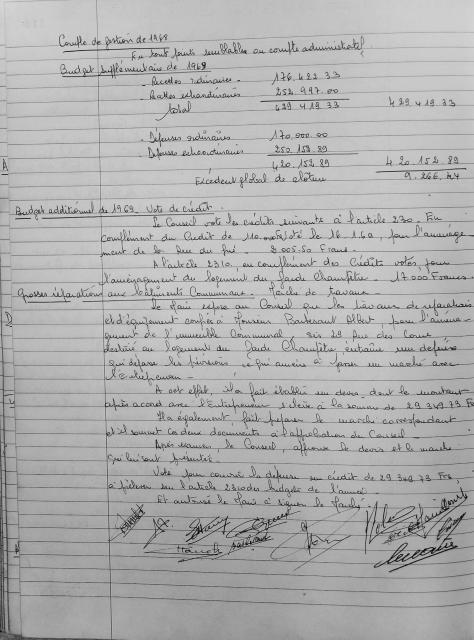 Compte de gestion de 1968
En tout points semblables au compte administratif.
Budget supplémentaire de 1968
- Recettes ordinaires - 176.422.33
- Recettes extraordinaires 252.997.00
total 429.419.33 429.419.33
- Dépenses ordinaires 170.000.00
- Dépenses extraordinaires 250.152.89
420.152.89 420.152.89
Excédent global de clôture 9.266.44
Budget additionnel de 1969 - Vote de crédit.
Le Conseil vote les crédits suivants à l'article 230. En
complément du Crédit de 10.000 voté le 16.1.69, pour l'aménage-
ment de la Rue du 8.005.50 Francs.
A l'article 2310, en complément des Crédits votés, pour
l'aménagement du logement du Garde Champêtre - 17000 Francs
Grosses réparations aux bâtiments Communaux - Marché de travaux
Le Maire expose au Conseil que les travaux de réparations
et d'équipement confiés à Monsieur Albert, pour l'aména-
gement de l'immeuble Communal sis 29 Rue des
destiné au logement du Garde Champêtre, entraîne une dépense
qui dépasse les prévisions ce qui amène à passer un marché avec
l'Entrepreneur -
A cet effet, il a fait établir un devis, dont le montant
après accord avec l'Entrepreneur s'élève à la somme de 29 349.73 Frs
Il a également, fait préparer le marché correspondant
et il soumet ces deux documents à l'approbation du Conseil -
Après examen le Conseil, approuve le devis et le marché
qui lui sont présentés.
Vote pour couvrir la dépense un crédit de 29 349.73 Frs,
à prélever sur l'article 2310 des budgets de l'année.
Et autorise le Maire à signer le Marché.